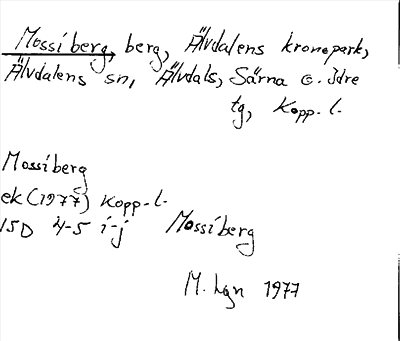 Mossiberg, berg, Älvdalens kronopark,
Älvdalens sn, Älvdals, Särna o. Idre
tg, Kopp. l.
Mossiberg
ek (1977) Kopp. l.
15D 4-5 i-j
Mossiberg
M. Lgn 1977